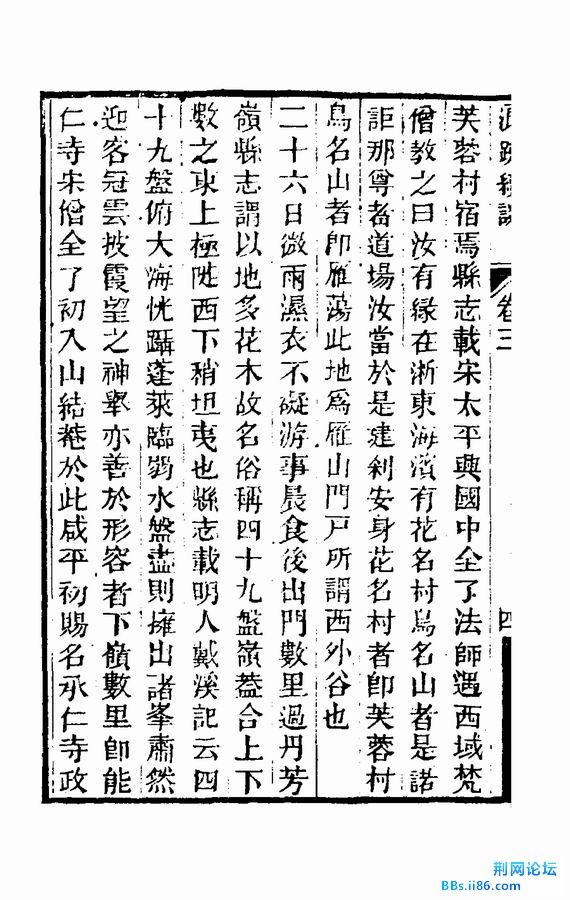 卷三
四
芙蓉村宿焉縣志載宋太平興國中全了法師遇西域梵
僧教之曰汝有緣在浙東海濱有花名村鳥名山者是諾
詎那尊者道場汝當於是建刹安身花名村者即芙蓉村
鳥名山者即雁蕩此地爲雁山門戸所謂西外谷也
二十六日微雨濕衣不礙游事晨食後出門數里過丹芳
嶺縣志謂以地多花木故名俗稱四十九盤嶺葢合上下
數之東上極陡西下稍坦夷也縣志載明人戴溪記云四
十九盤俯大海恍躡蓬萊臨弱水盤盡則擁出諸峯肅然
迎客冠雲披霞望之神舉亦善於形容者下嶺數里即能
仁寺宋僧全了初入山結菴於此咸平初賜名承仁寺政
荆网论坛
BBs.ii86.com